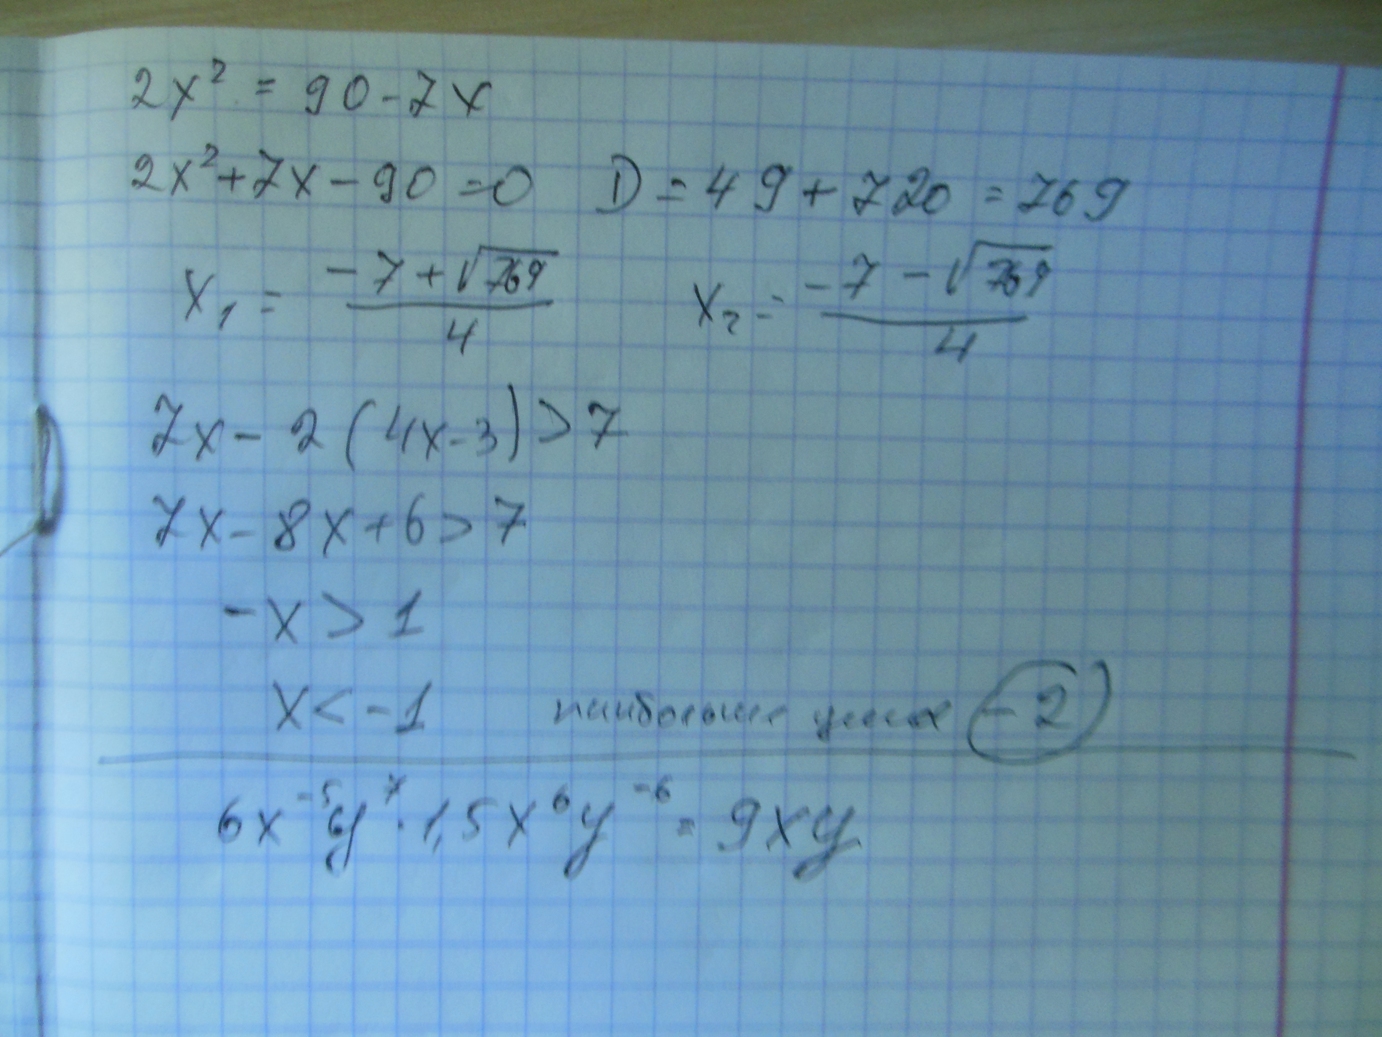 2x² = 90 - 7x
2x² + 7x - 90 = 0 D = 49 + 720 = 769
x₁ = (-7 + √769)/4 x₂ = (-7 - √769)/4
7x - 2(4x - 3) > 7
7x - 8x + 6 > 7
-x > 1
x < -1 наибольшее целое -2
6x⁻⁵y⁷ · 1,5x⁶y⁻⁶ = 9xy